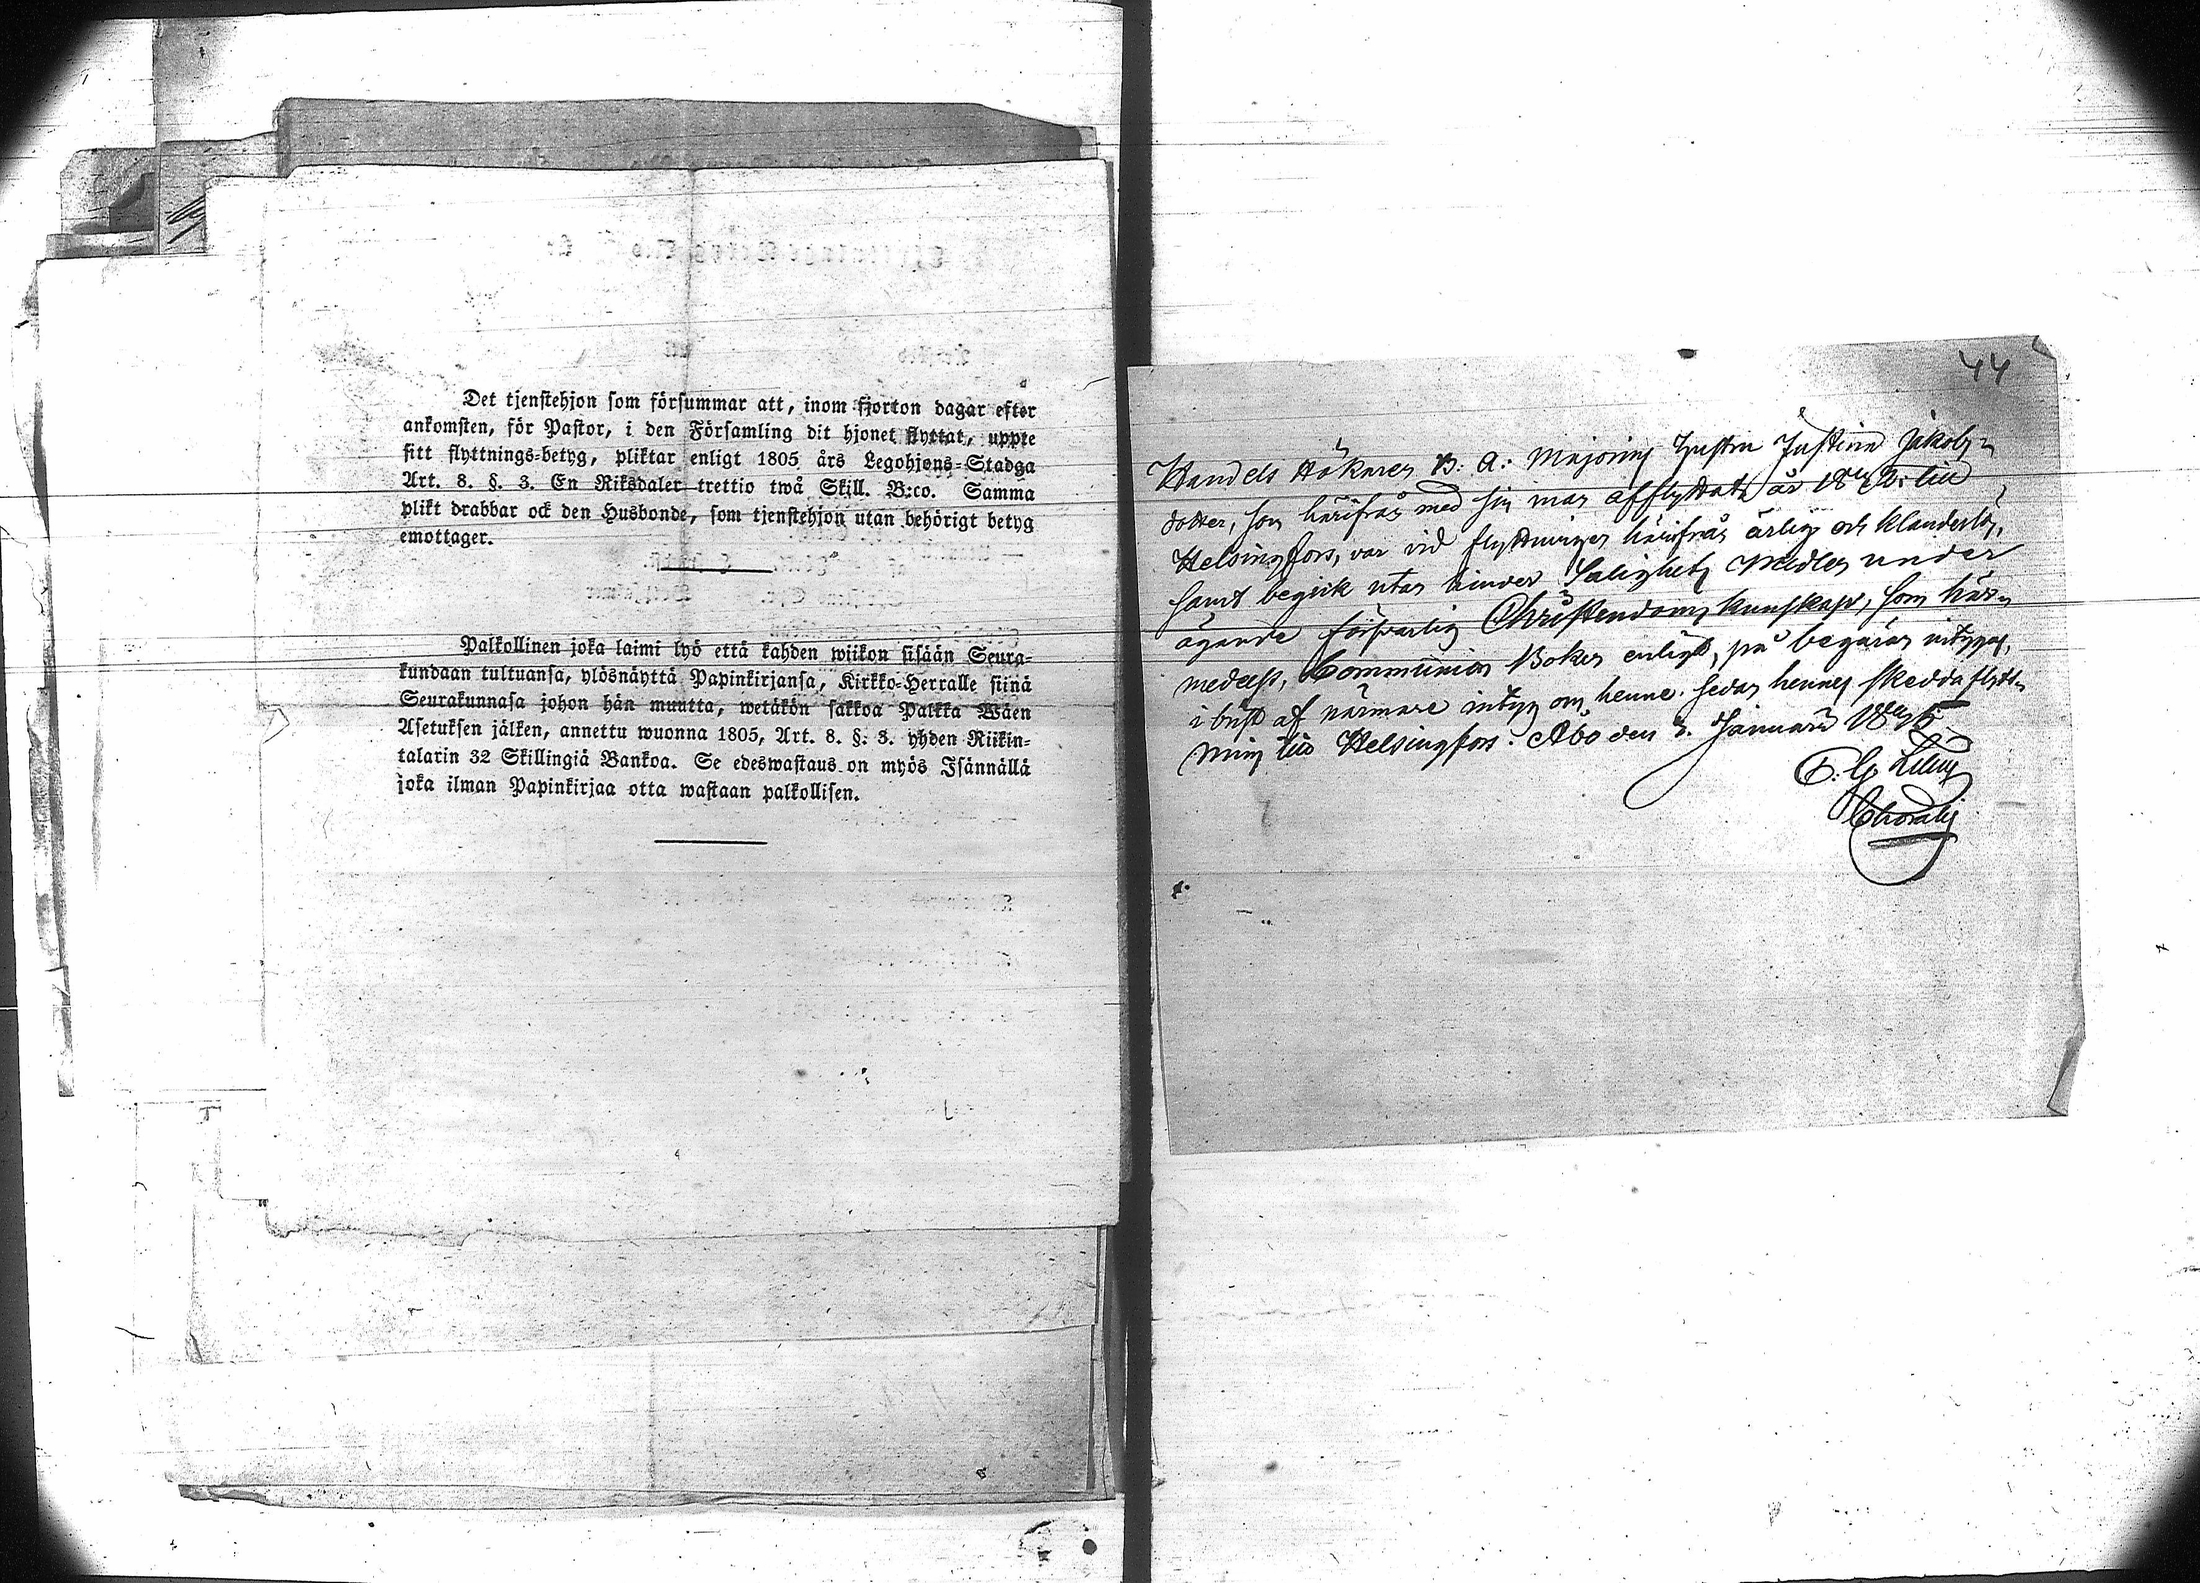 Det tjenstehjon som försummar att, inom fjorton dagar efter
ankomsten, för Pastor, i den Församling dit hjonet flyttat, uppte
sitt flyttnings-betyg, pliktar enligt 1805 års Legohjons-Stadga
Art. 8. §. 3. En Riksdaler trettio twå Skill. B:co. Samma
plikt drabbar ock den Husbonde, som tjenstehjon utan behörigt betyg
emottager.
Palkollinen joka laimi lyö että kahden wiikon sisään Seura-
kundaan tultuansa, ylösnäyttä Papinkirjansa, Kirkko-Herralle siinä
Seurakunnasa johon hän muutta, wetäkön sakkoa Palkka Wäen
Asetuksen jälken, annettu wuonna 1805, Art. 8. §. 3. yhden Riikin-
talarin 32 Skillingiä Bankoa. Se edeswastaus on myös Isännällä
joka ilman Papinkirjaa otta wastaan palkollisen.
44
Handels Hökaren B. A. Majorins Hustru Justina Jakobs-
dotter, som härifrån med sin man afflyttat år till
Helsingfors, var vid flyttningen härifrån ärlig och klanderlös,
samt begick utan hinder Salighets Medlen under
ägande försvarlig Christendoms kunskap, som här-
medelst, Communion Boken enligt, på begäran intygas,
i brist af närmare intyg om henne sedan hennes skedda flytt-
ning till Helsingfors. Åbo den 3. Januari